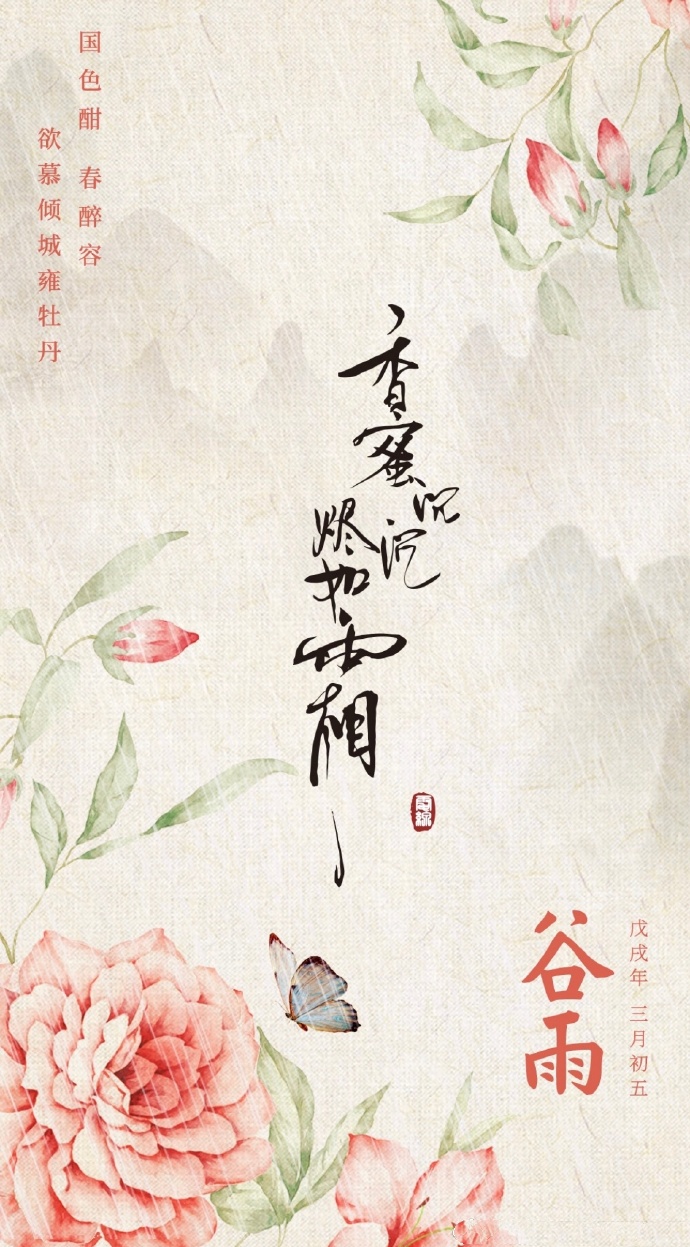 国色酣 春醉容
欲慕倾城雍牡丹
香蜜沉沉
烬如霜
谷雨
戊戌年 三月初五